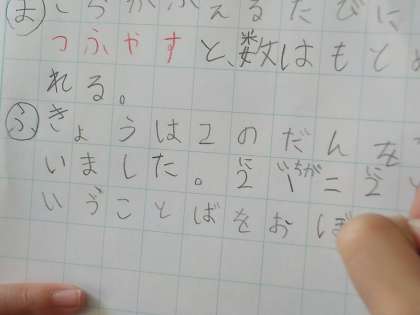 よ こらがふえるたびに
つふやすと、数はもとめ
れる。
ふ きょうは2のだんを
いました。2に1いちが=2に
いうことばをおぼ